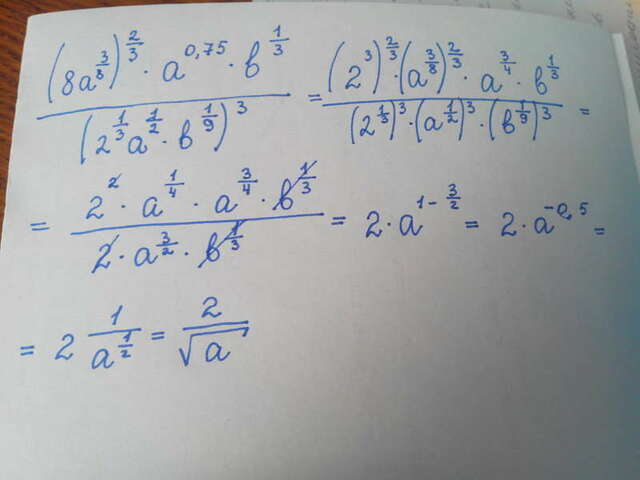 (8a^(3/8))^(2/3) · a^(0,75) · b^(1/3) / (2^(1/3) a^(1/2) · b^(1/9))^3 = (2^3)^(2/3) · (a^(3/8))^(2/3) · a^(3/4) · b^(1/3) / (2^(1/3))^3 · (a^(1/2))^3 · (b^(1/9))^3 =
= 2^2 · a^(1/4) · a^(3/4) · b^(1/3) / 2 · a^(3/2) · b^(1/3) = 2 · a^(1 - 3/2) = 2 · a^(-0,5) =
= 2 1/a^(1/2) = 2/√a